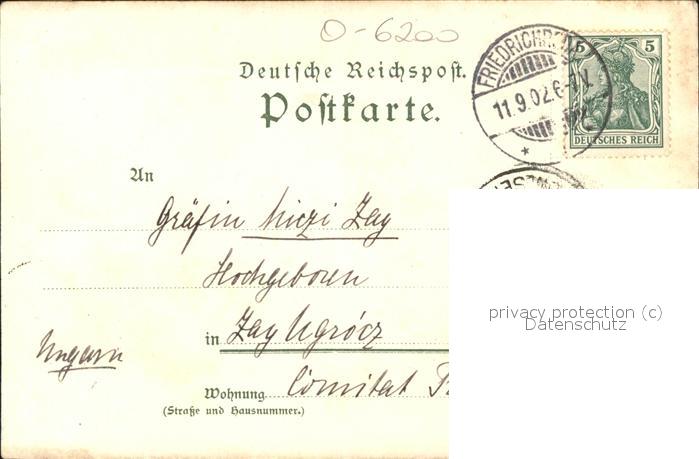 O-6200
Deutsche Reichspost.
Postkarte.
11.9.02.6-7N.
5 5
DEUTSCHES REICH
An
Gräfin Miczi Zay
Hochgeboren
in Zay Ugrócz
Ungarn
Wohnung Comitat
(Straße und Hausnummer.)
privacy protection (c)
Datenschutz